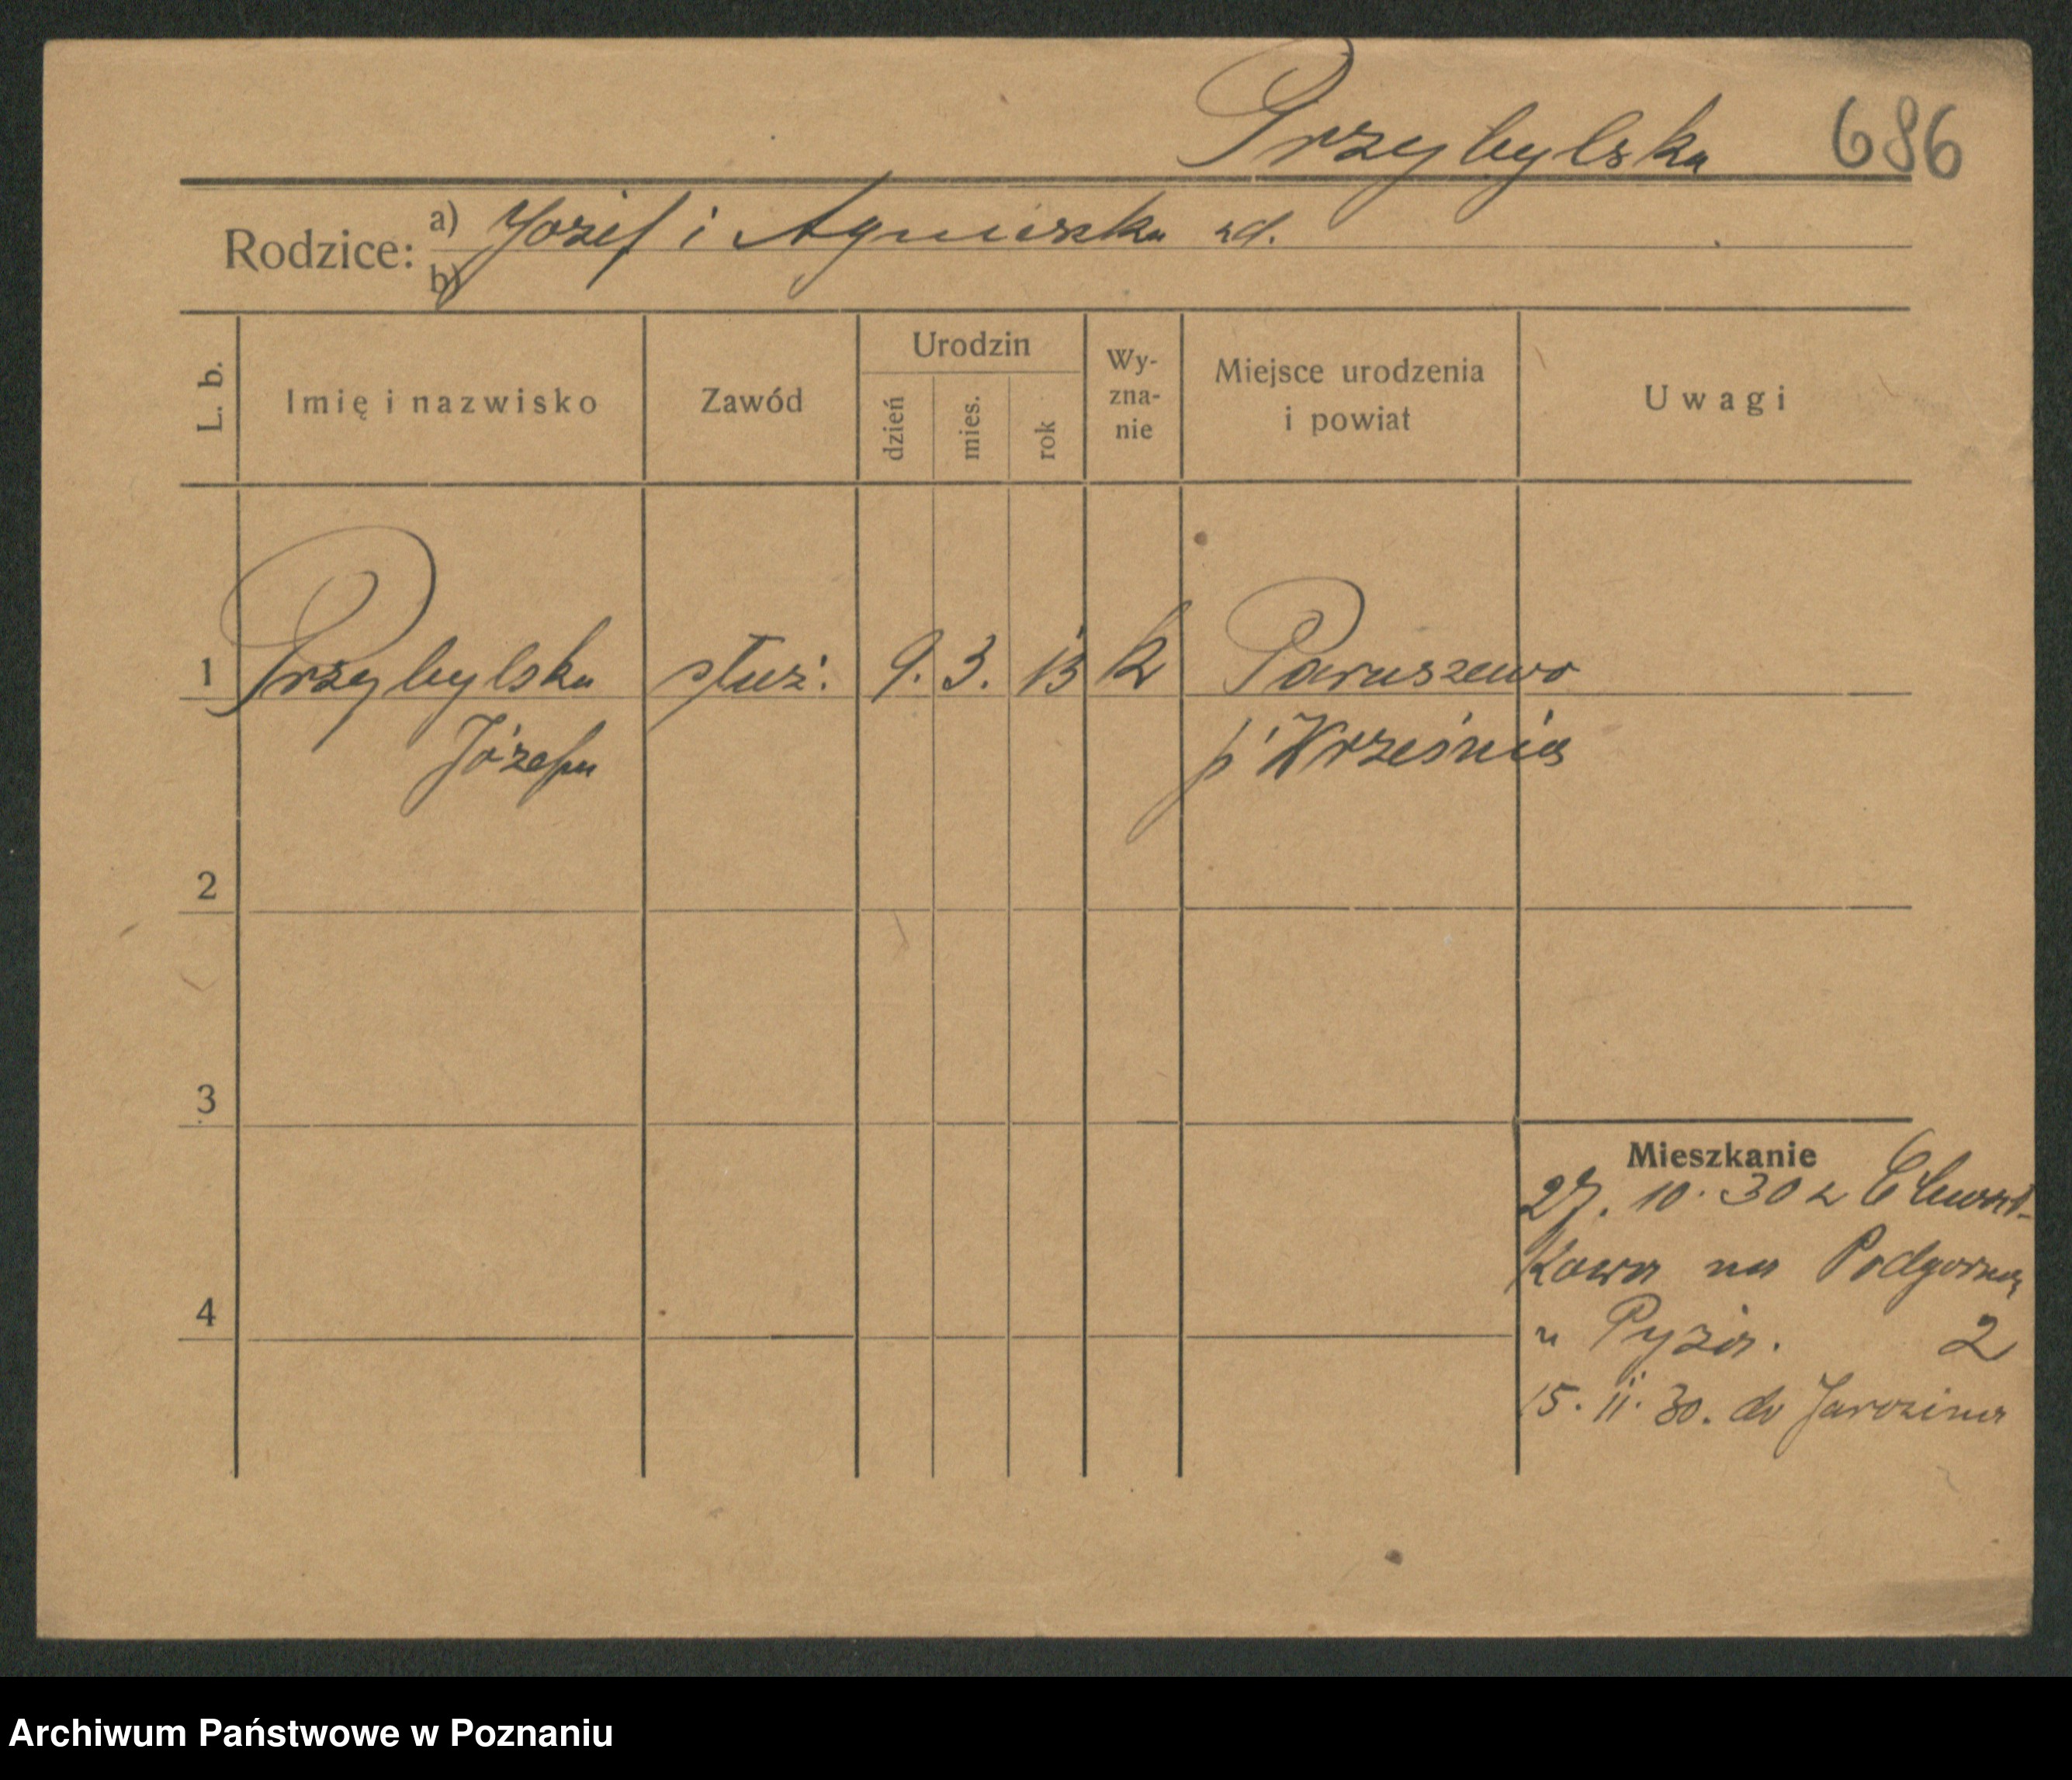 Przybylska 686
Rodzice: a) Józef i Agnieszka
b)
L. b.
Imię i nazwisko
Zawód
Urodzin
dzień
mies.
rok
Wy-
zna-
nie
Miejsce urodzenia
i powiat
Uwagi
1 Przybylska służ. 9. 3. 13 k Paruszewo
Józefa p. Września
2
3
4
Mieszkanie
27. 10. 30 z
kowa na Podgorną
u Pyzia. 2
15. 11. 30. do Jarocina
Archiwum Państwowe w Poznaniu